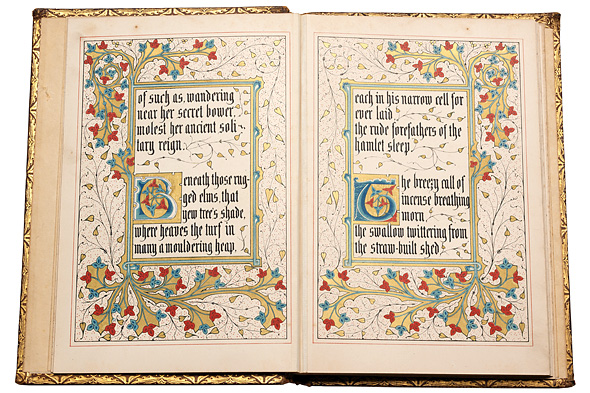 of such as, wandering
near her secret bower,
molest her ancient soli-
tary reign.
Beneath those rug-
ged elms, that
yew tree's shade,
where heaves the turf in
many a mouldering heap,
each in his narrow cell for
ever laid,
the rude forefathers of the
hamlet sleep.
The breezy call of
incense breathing
morn,
the swallow twittering from
the straw-built shed,